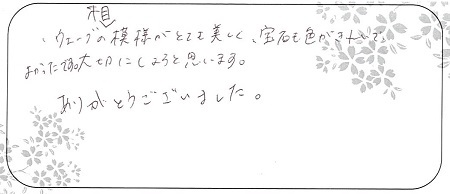 相
、ウェーブの模様がとても美しく、宝石も色がきれいで、
よかったです。大切にしようと思います。
ありがとうございました。